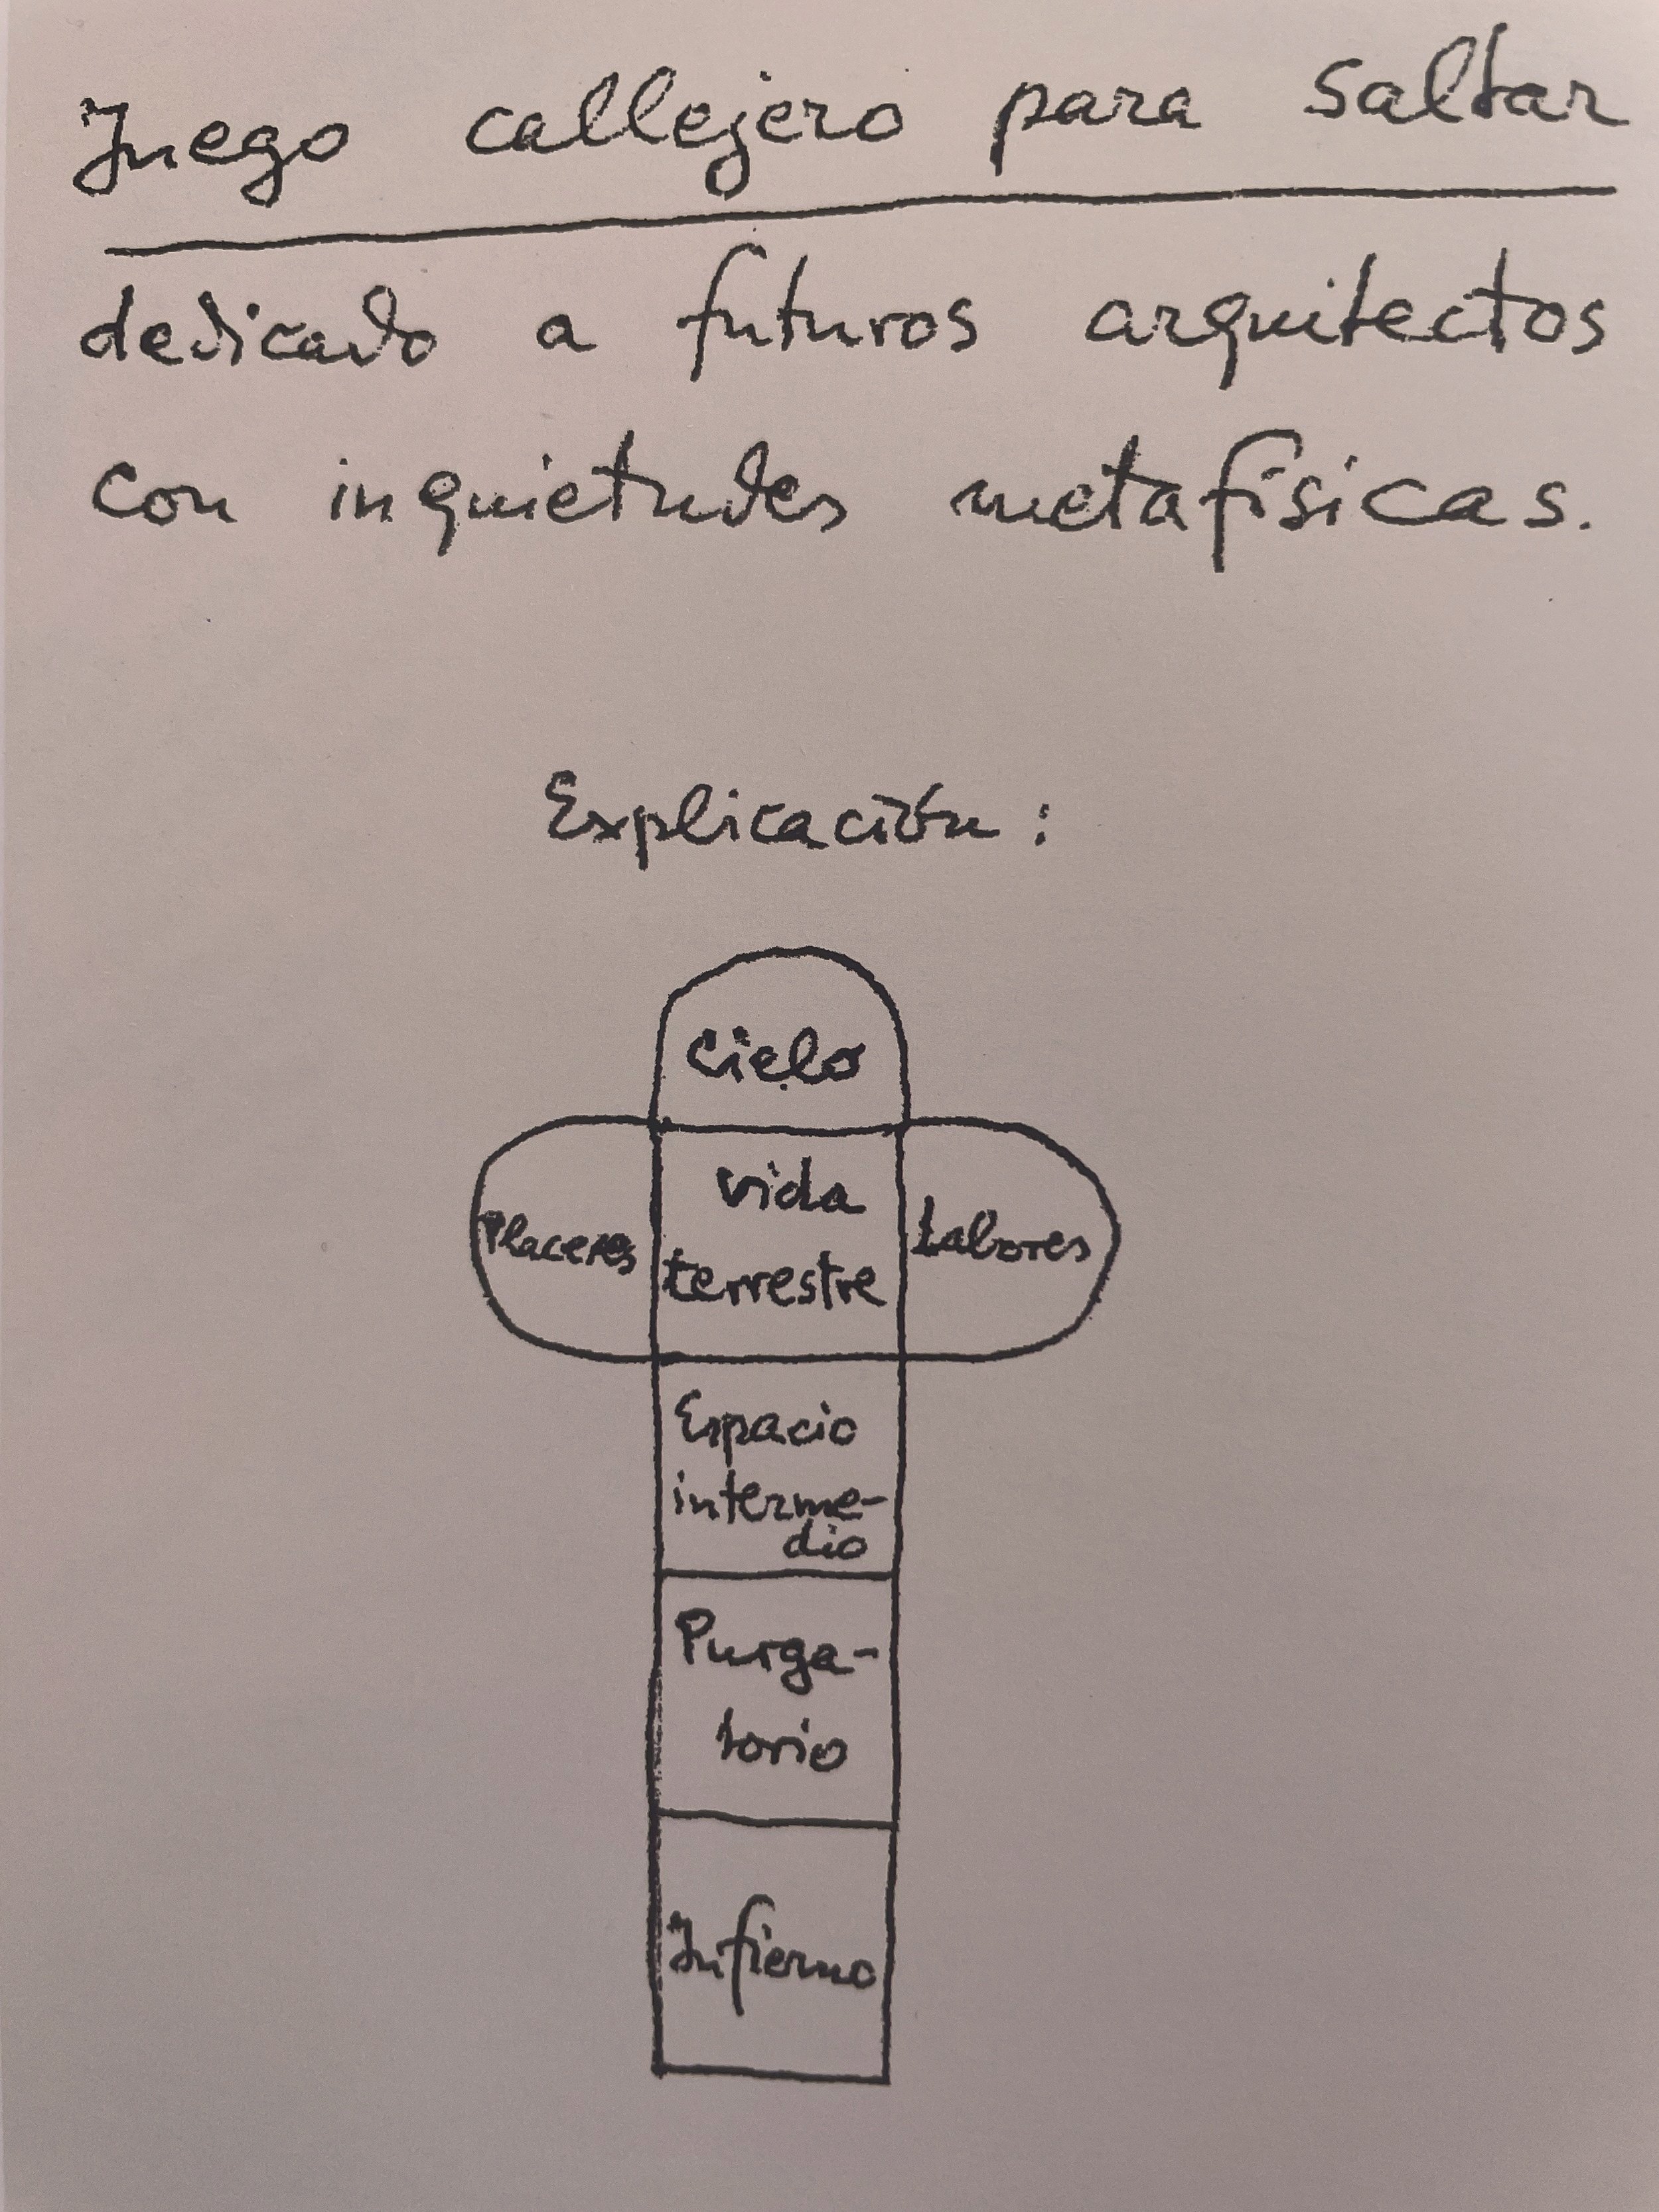 Juego callejero para saltar
dedicado a futuros arquitectos
con inquietudes metafísicas.
Explicación:
Cielo
Placeres
vida
terrestre
Labores
Espacio
interme-
dio
Purga-
torio
Infierno